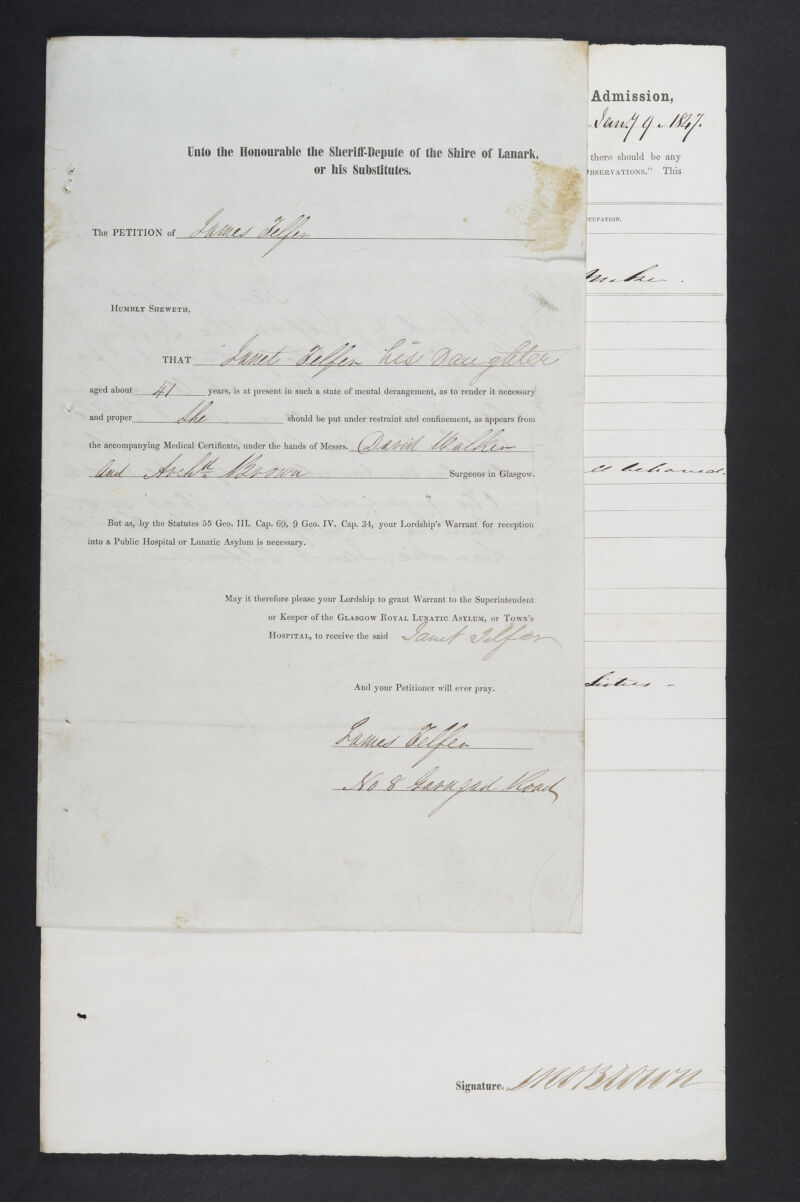 Unto the Honourable the Sheriff-Depute of the Shire of Lanark,
or his Substitutes.
The PETITION of James Telfer
HUMBLY SHEWETH,
THAT Janet Telfer his Daughter
aged about 41 years, is at present in such a state of mental derangement, as to render it necessary
and proper she should be put under restraint and confinement, as appears from
the accompanying Medical Certificate, under the hands of Messrs. David Walker
and Archd. Brown Surgeons in Glasgow.
But as, by the Statutes 55 Geo. III. Cap. 69, 9 Geo. IV. Cap. 34, your Lordship's Warrant for reception
into a Public Hospital or Lunatic Asylum is necessary.
May it therefore please your Lordship to grant Warrant to the Superintendent
or Keeper of the GLASGOW ROYAL LUNATIC ASYLUM, or TOWN'S
HOSPITAL, to receive the said Janet Telfer
And your Petitioner will ever pray.
James Telfer
No 8 Garngad Road
Admission,
Jany 9 1847.
there should be any
BSERVATIONS." This
CCUPATION.
behaved.
Sisters -
Signature. Brown